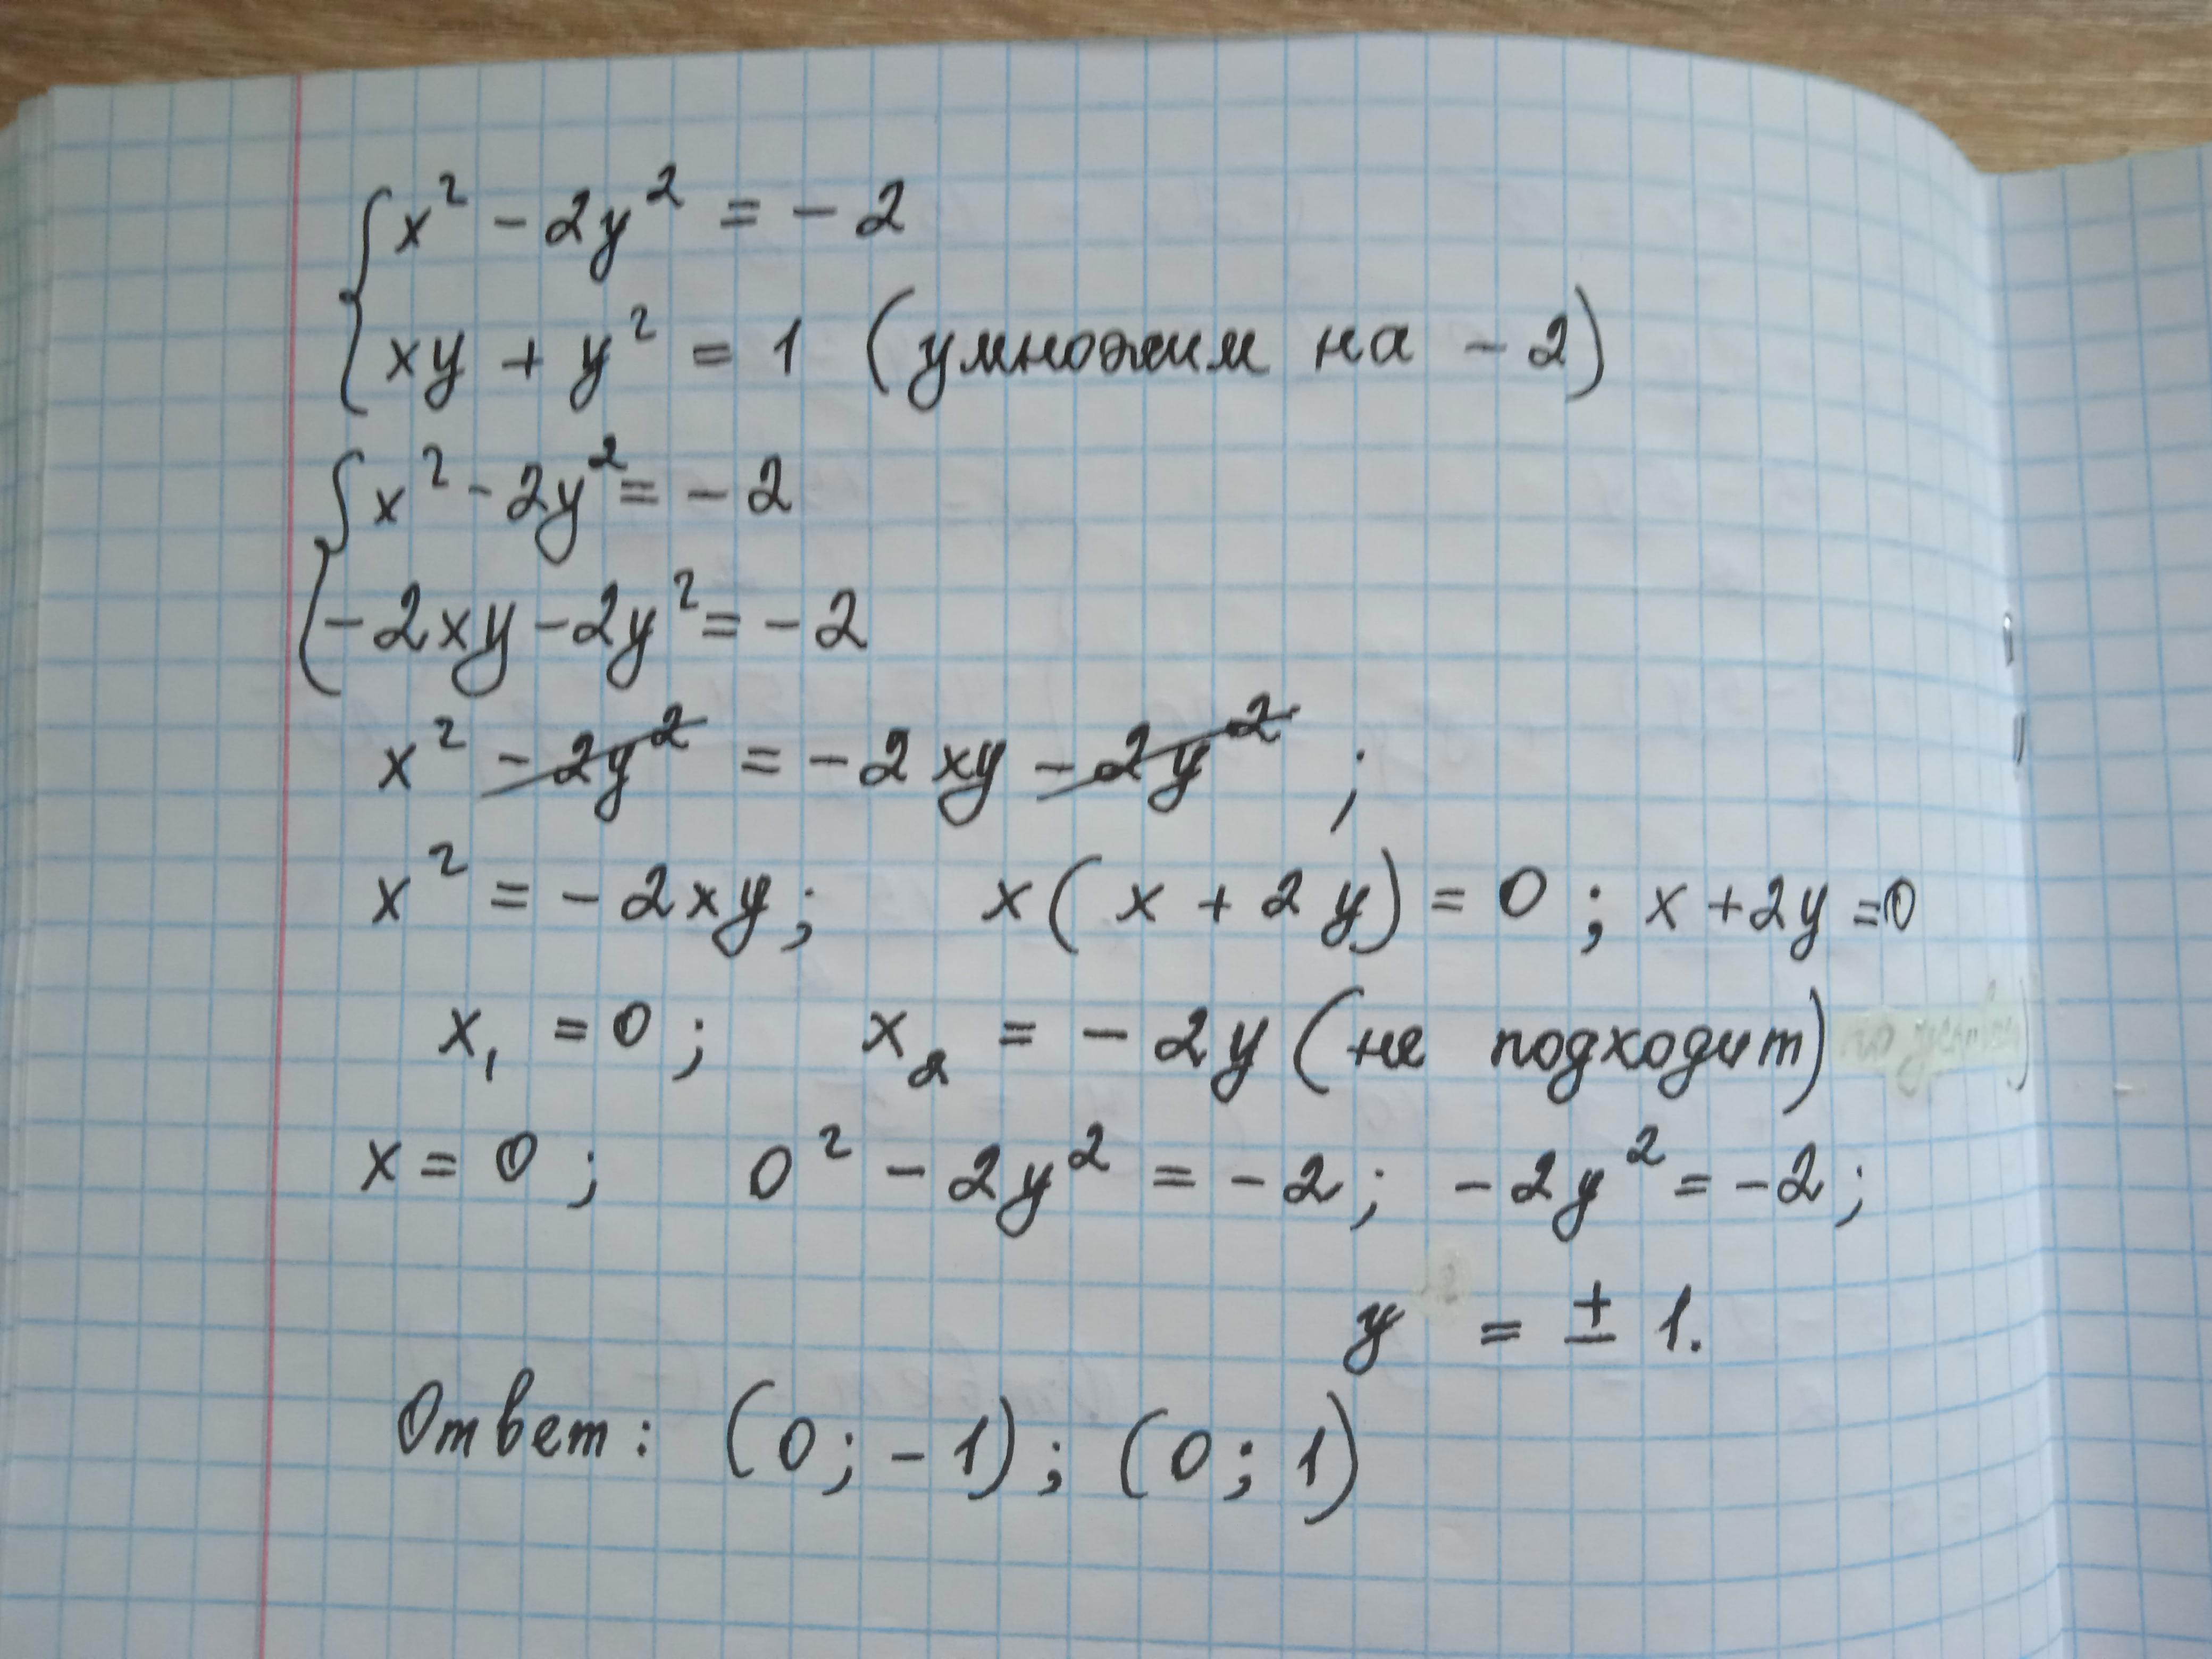 x² - 2y² = - 2
xy + y² = 1 (умножим на - 2)
x² - 2y² = - 2
- 2xy - 2y² = - 2
x² - 2y² = - 2xy - 2y² ;
x² = - 2xy; x( x + 2y) = 0 ; x + 2y = 0
x₁ = 0 ; x₂ = - 2y (не подходит)
x = 0 ; 0² - 2y² = - 2; - 2y² = - 2 ;
y = ± 1.
Ответ: (0; - 1); (0; 1)